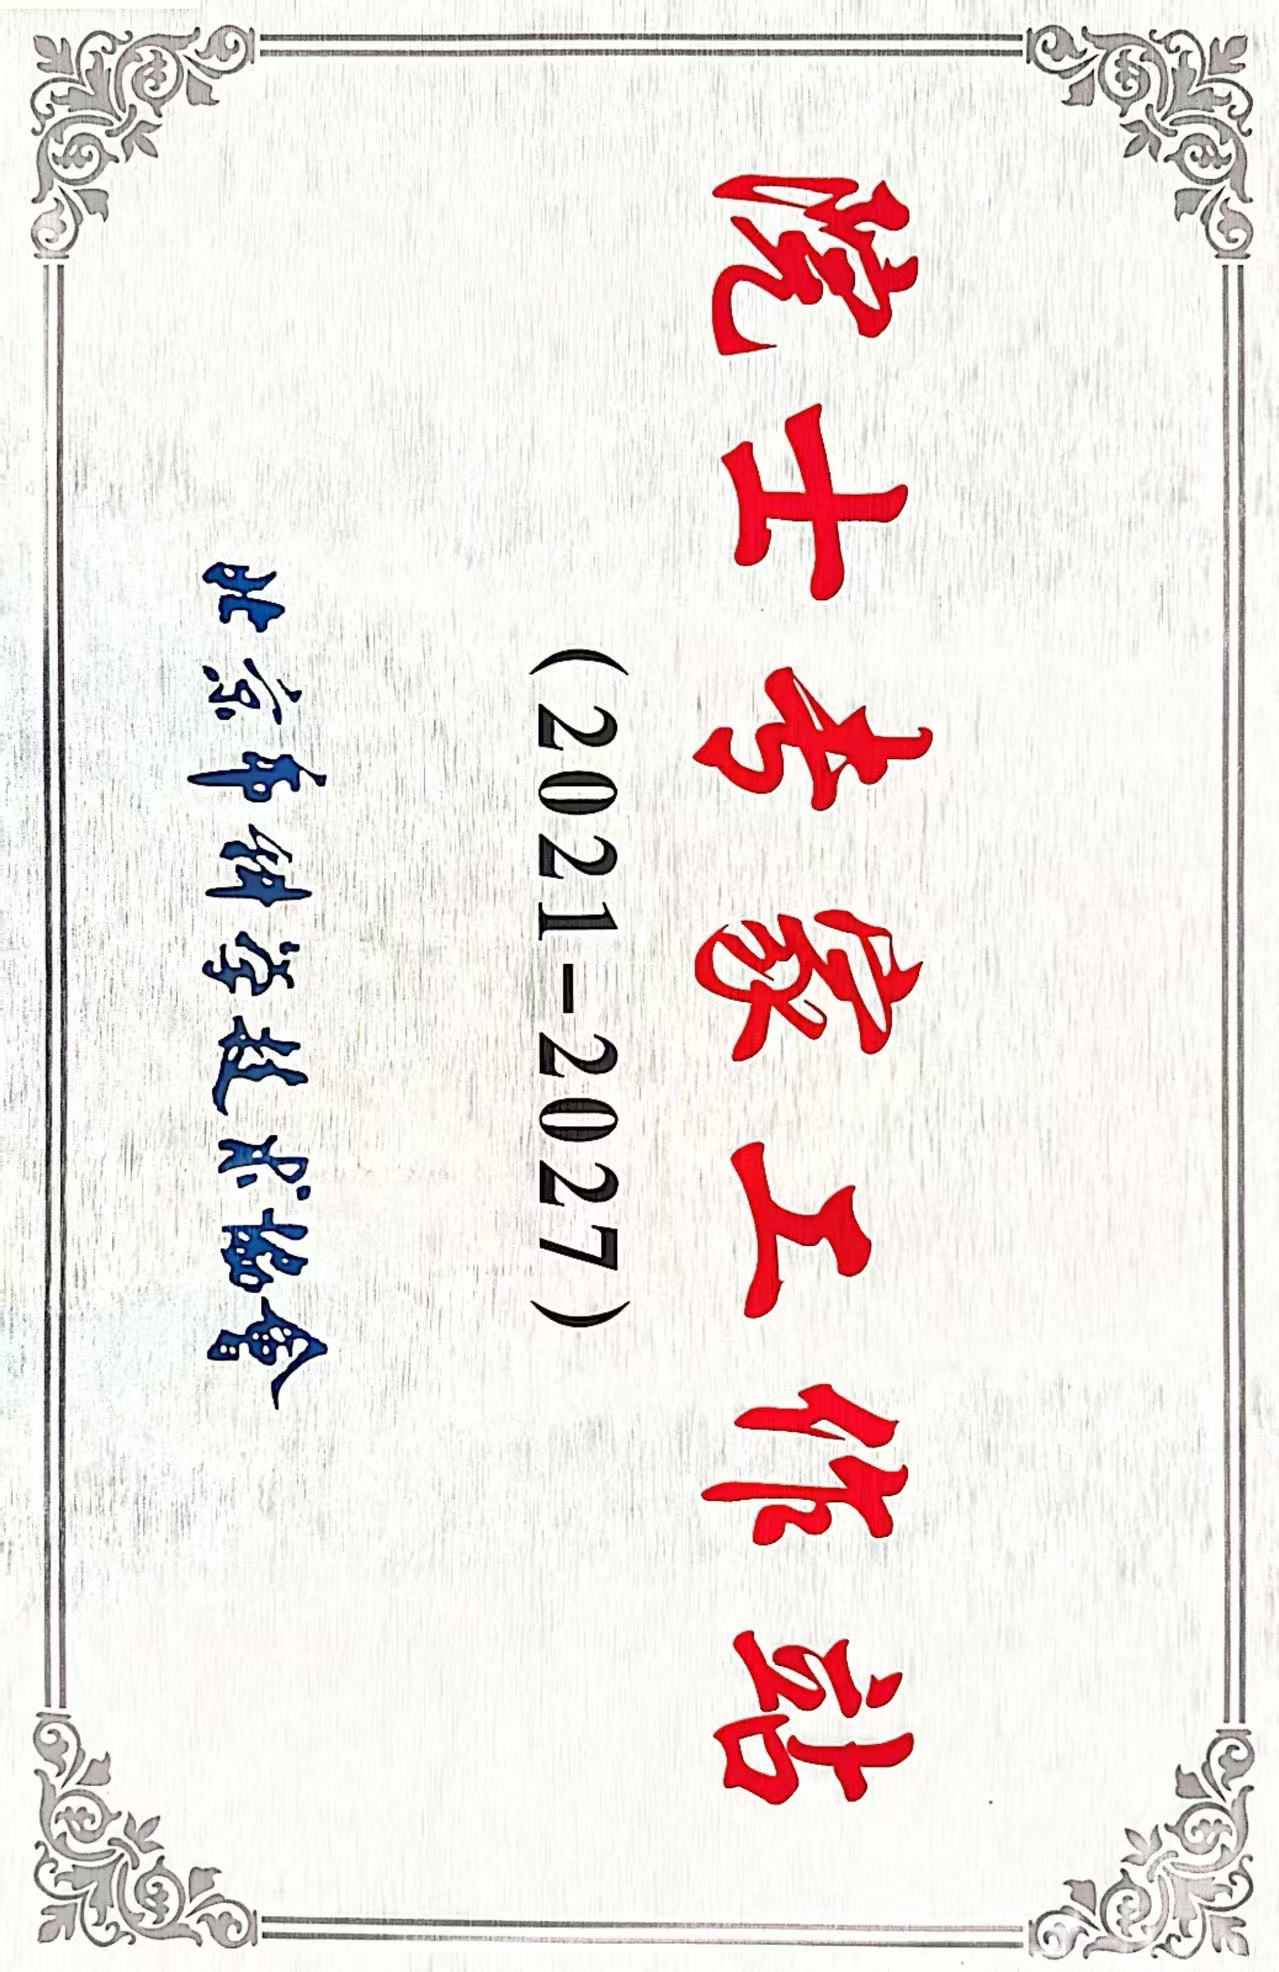 院士专家工作站
(2021-2027)
北京市科学技术协会